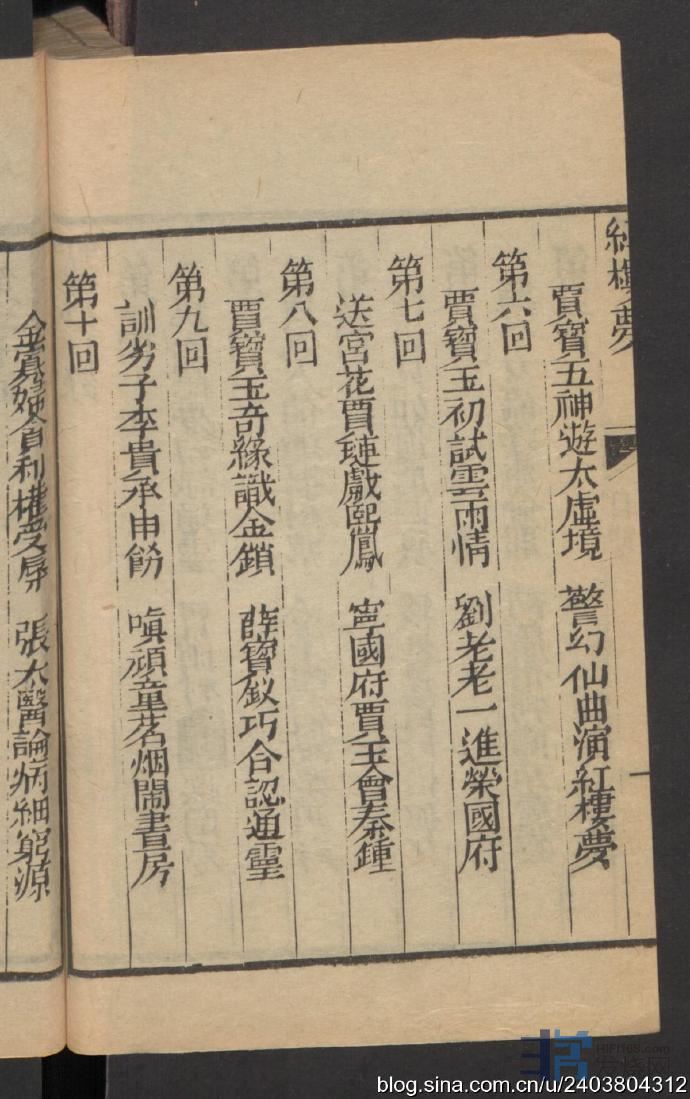 紅樓夢
賈寶五神遊太虛境　警幻仙曲演紅樓夢
第六回
賈寶玉初試雲雨情　劉老老一進榮國府
第七回
送宮花賈璉戲熙鳳　寧國府賈玉會秦鍾
第八回
賈寶玉奇緣識金鎖　薛寶釵巧合認通靈
第九回
訓劣子李貴承申飭　嗔頑童茗烟鬧書房
第十回
金寡婦貪利權受辱　張太醫論病細窮源
HIFI168.com
发烧网
blog.sina.com.cn/u/2403804312